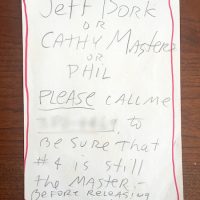 Jeff Bork
OR
CATHY Masters
OR
PHIL
PLEASE CALL ME
, to
BE SURE THAT
#4 is still
the MASTER -
BEFORE RELEASING